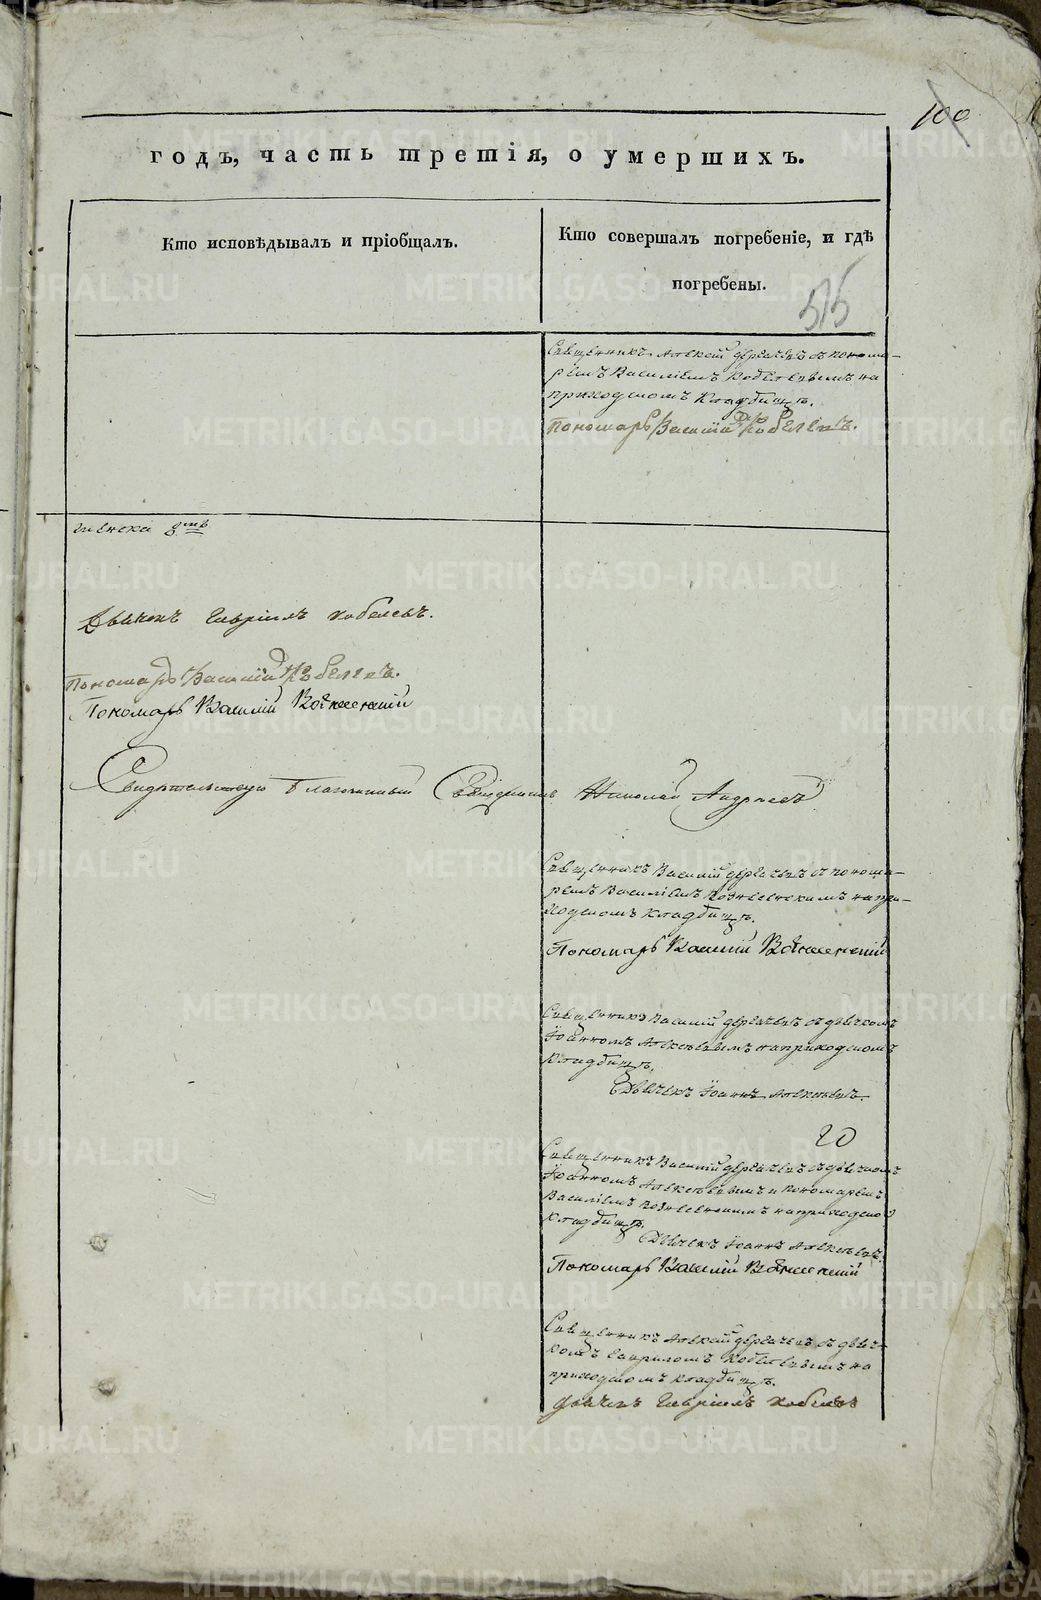 100
годъ, часть третія, о умершихъ.
Кто исповѣдывалъ и пріобщалъ.
Кто совершалъ погребеніе, и гдѣ
погребены.
515
Священникъ Алексѣй Дергачевъ съ понома-
ремъ Василіемъ Кобелевымъ на
приходскомъ кладбищѣ.
Пономарь Василій Кобелевъ.
женска
Дьячекъ Гавріилъ Кобелевъ.
Пономарь Василій Кобелевъ.
Пономарь Василій Вознесенскій
Свидѣтельствую Благочинный Священникъ Николай Андреевъ
Священникъ Василій Дергачевъ съ понома-
ремъ Василіемъ Вознесенскимъ на при-
ходскомъ кладбищѣ.
Пономарь Василій Вознесенскій
Священникъ Василій Дергачевъ съ дьячкомъ
Іоанномъ Алексѣевымъ на приходскомъ
кладбищѣ.
Дьячекъ Іоаннъ Алексѣевъ.
20
Священникъ Василій Дергачевъ съ дьячкомъ
Іоанномъ Алексѣевымъ и пономаремъ
Василіемъ Вознесенскимъ на приходском
кладбищѣ.
Дьячекъ Іоаннъ Алексѣевъ.
Пономарь Василій Вознесенскій
Священникъ Алексѣй Дергачевъ съ дьяч-
комъ Гавриломъ Кобелевымъ на
приходскомъ кладбищѣ.
Дьячекъ Гавріилъ Кобелевъ
METRIKI.GASO-URAL.RU